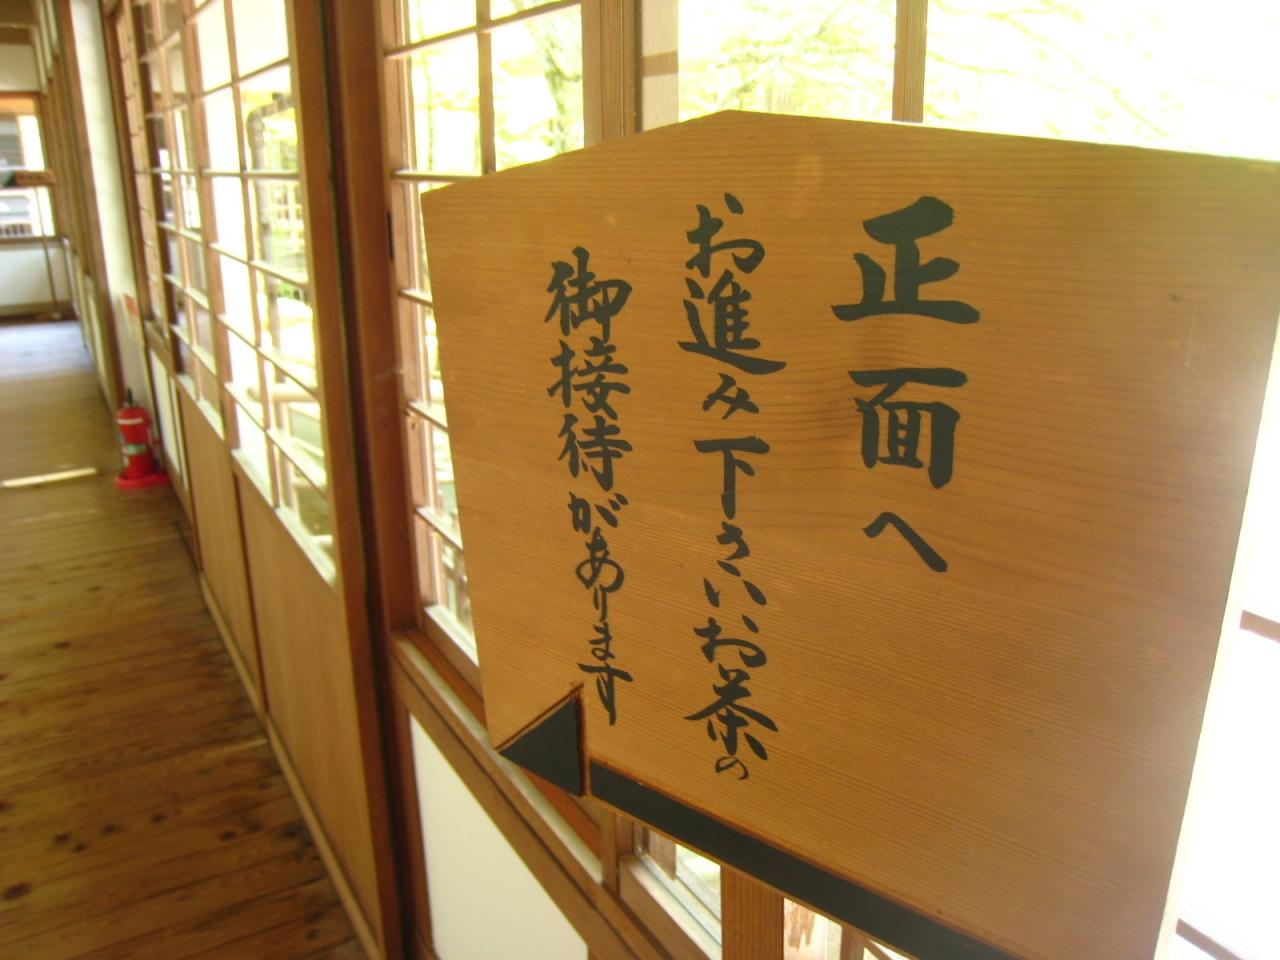 正面へ
お進み下さいお茶の
御接待があります